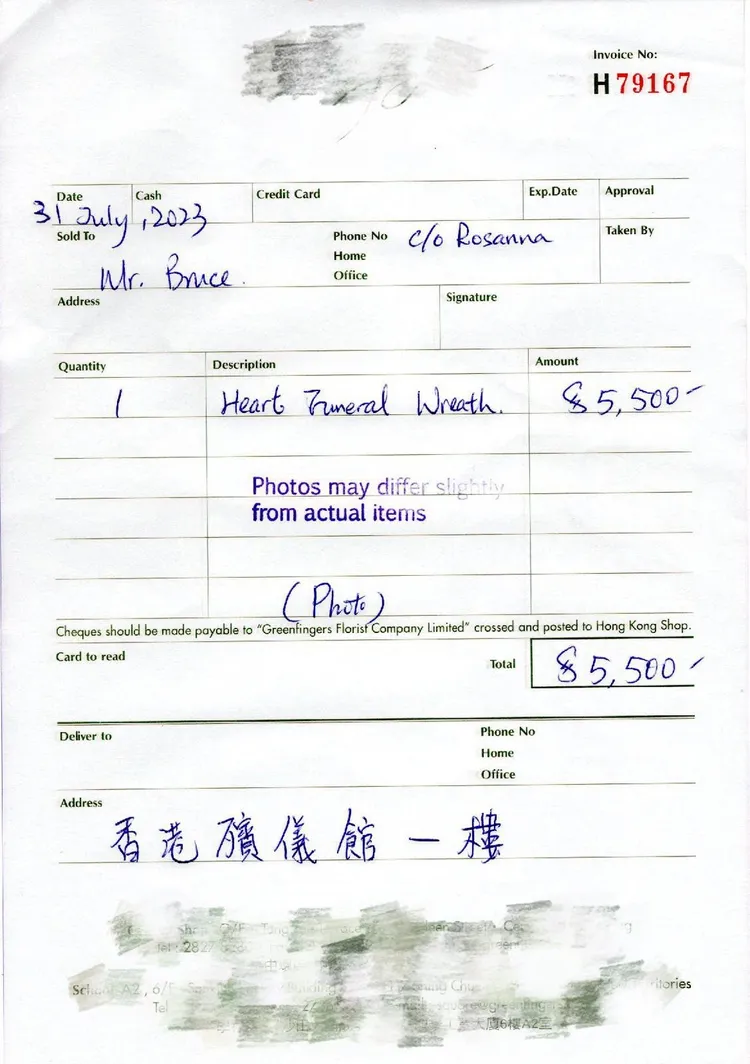 Invoice No:
H 79167
Date Cash Credit Card Exp.Date Approval
31 July, 2023
Sold To Phone No c/o Rosanna Taken By
Home
Mr. Bruce. Office
Address Signature
Quantity Description Amount
1 Heart Funeral Wreath. $5,500-
Photos may differ slightly
from actual items
(Photo)
Cheques should be made payable to "Greenfingers Florist Company Limited" crossed and posted to Hong Kong Shop.
Card to read Total $5,500-
Deliver to Phone No
Home
Office
Address
香港殯儀館一樓